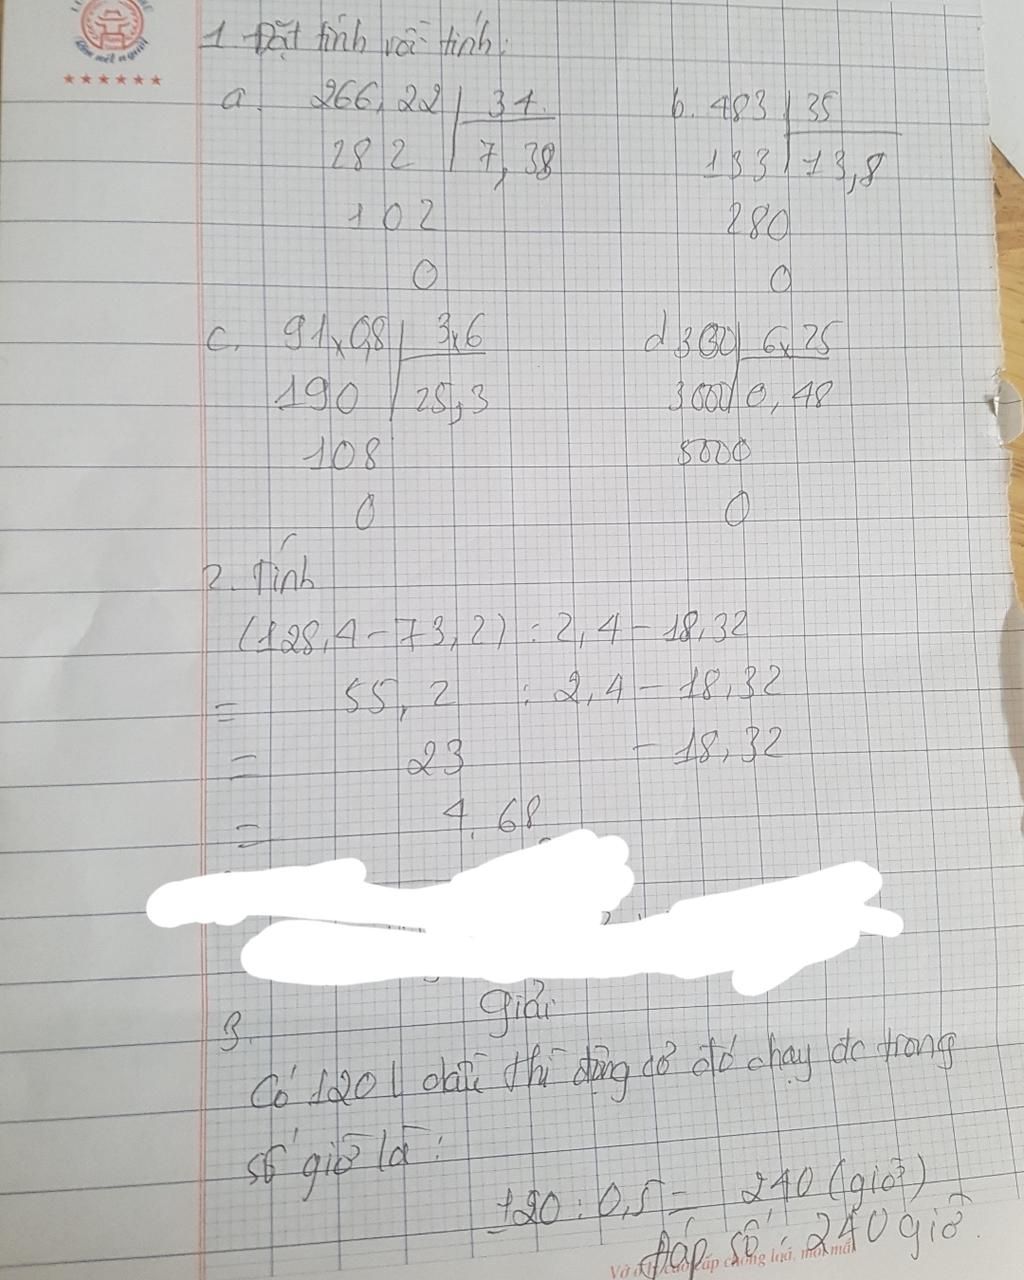 1. Đặt tính rồi tính:
a. 266,22 | 34 b. 483 | 35
282 | 7,83 133 | 13,8
102 280
0 0
c. 91,0,8 | 3,6 d 300 | 6,25
190 | 25,3 3000 | 0,48
108 5000
0 0
2. Tính
(128,4 - 73,2) : 2,4 - 18,32
= 55,2 : 2,4 - 18,32
= 23 - 18,32
= 4,68
Giải
3.
Có 120 l dầu thì động cơ đó chạy đc trong
số giờ là:
120 : 0,5 = 240 (giờ)
Đáp số: 240 giờ.